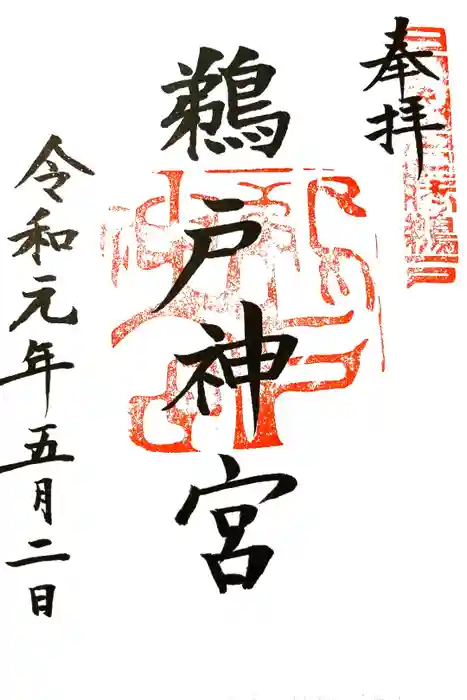 奉拝
鵜戸神宮
令和元年五月二日